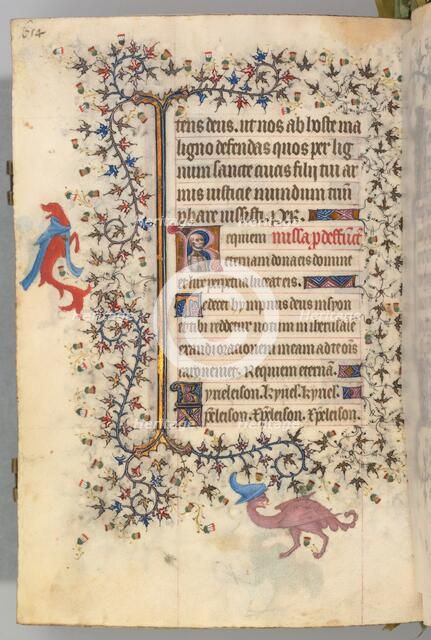 614
tens deus. ut nos ab hoste ma
ligno defendas quos per lig
num sancte crucis filii tui ar
mis iusticie mundum
iussisti. Per.
Requiem missa p deffūct
eternam dona eis domine
et lux perpetua luceat eis.
Te decet hympnus deus in syon
et tibi redetur votum in iherusalē
exaudi orationem meam ad te om
caro veniet. Requiem eternā.
Kyrieleison. kyriel. kyriel.
xpeleison. Xpeleison. Xpeleison.
Heritage
Heritage
Heritage
Heritage